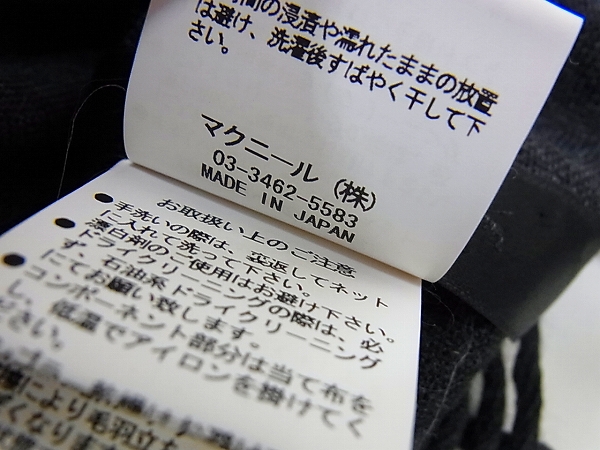 間の浸漬や濡れたままの放置
は避け、洗濯後すばやく干して下
さい。
マクニール (株)
03-3462-5583
MADE IN JAPAN
お取扱い上のご注意
●手洗いの際は、裏返してネット
に入れて洗って下さい。
漂白剤のご使用はお避け下さい。
●ドライクリーニングの際は、必
ず、石油系ドライクリーニング
にてお願い致します。
●コンポーネント部分は当て布を
し、低温でアイロンを掛けてく
ださい。
により毛羽立
くなります